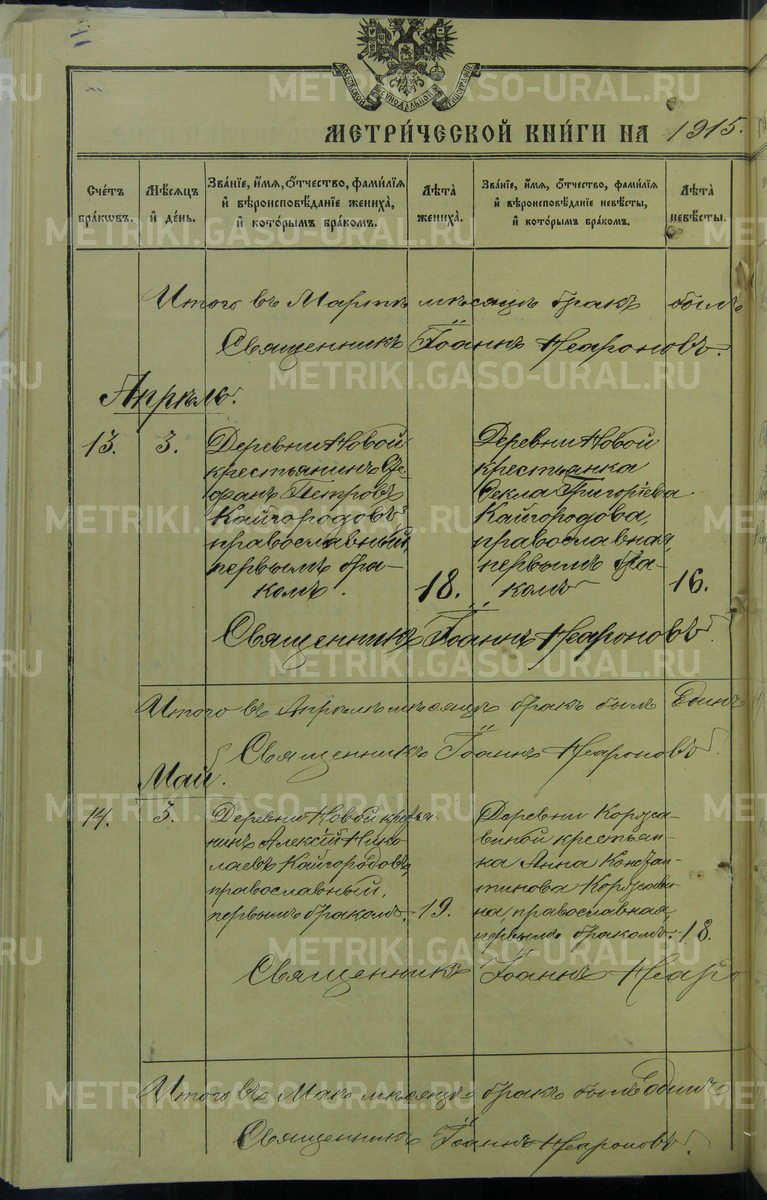 МОСКОВСКОЙ СѴНОДАЛЬНОЙ ТѴПОГРАФІИ
МЕТРИ́ЧЕСКОЙ КНИ́ГИ НА 1915.
Сче́тъ бра́ковъ.
Мѣ́сяцъ и де́нь.
Зва́ніе, и́мя, о́тчество, фами́лія и вѣроисповѣ́даніе жениха̀, и кото́рымъ бра́комъ.
Лѣ́та жениха̀.
Зва́ніе, и́мя, о́тчество, фами́лія и вѣроисповѣ́даніе невѣ́сты, и кото́рымъ бра́комъ.
Лѣ́та невѣ́сты.
Итого въ Мартѣ мѣсяцѣ бракъ былъ
Священникъ Іоаннъ Неароновъ.
Апрѣль.
13.
3.
Деревни Новой
крестьянинъ Ѳе-
офанъ Петровъ
Кайгородовъ,
православный,
первымъ бра-
комъ.
18.
Деревни Новой
крестьянка
Ѳекла Григоріева
Кайгородова,
православная,
первымъ бра-
комъ
16.
Священникъ Іоаннъ Неароновъ
Итого въ Апрѣлѣ мѣсяцѣ бракъ былъ Единъ
Священникъ Іоаннъ Неароновъ
Май.
14.
3.
Деревни Новой крестья-
нинъ Алексій Нико-
лаевъ Кайгородовъ,
православный,
первымъ бракомъ.
19.
Деревни
крестьян-
ка Анна Констан-
тинова
православная,
первымъ бракомъ.
18.
Священникъ Іоаннъ Неаро
Итого въ Маѣ мѣсяцѣ бракъ былъ Единъ
Священникъ Іоаннъ Неароновъ.
METRIKI.GASO-URAL.RU